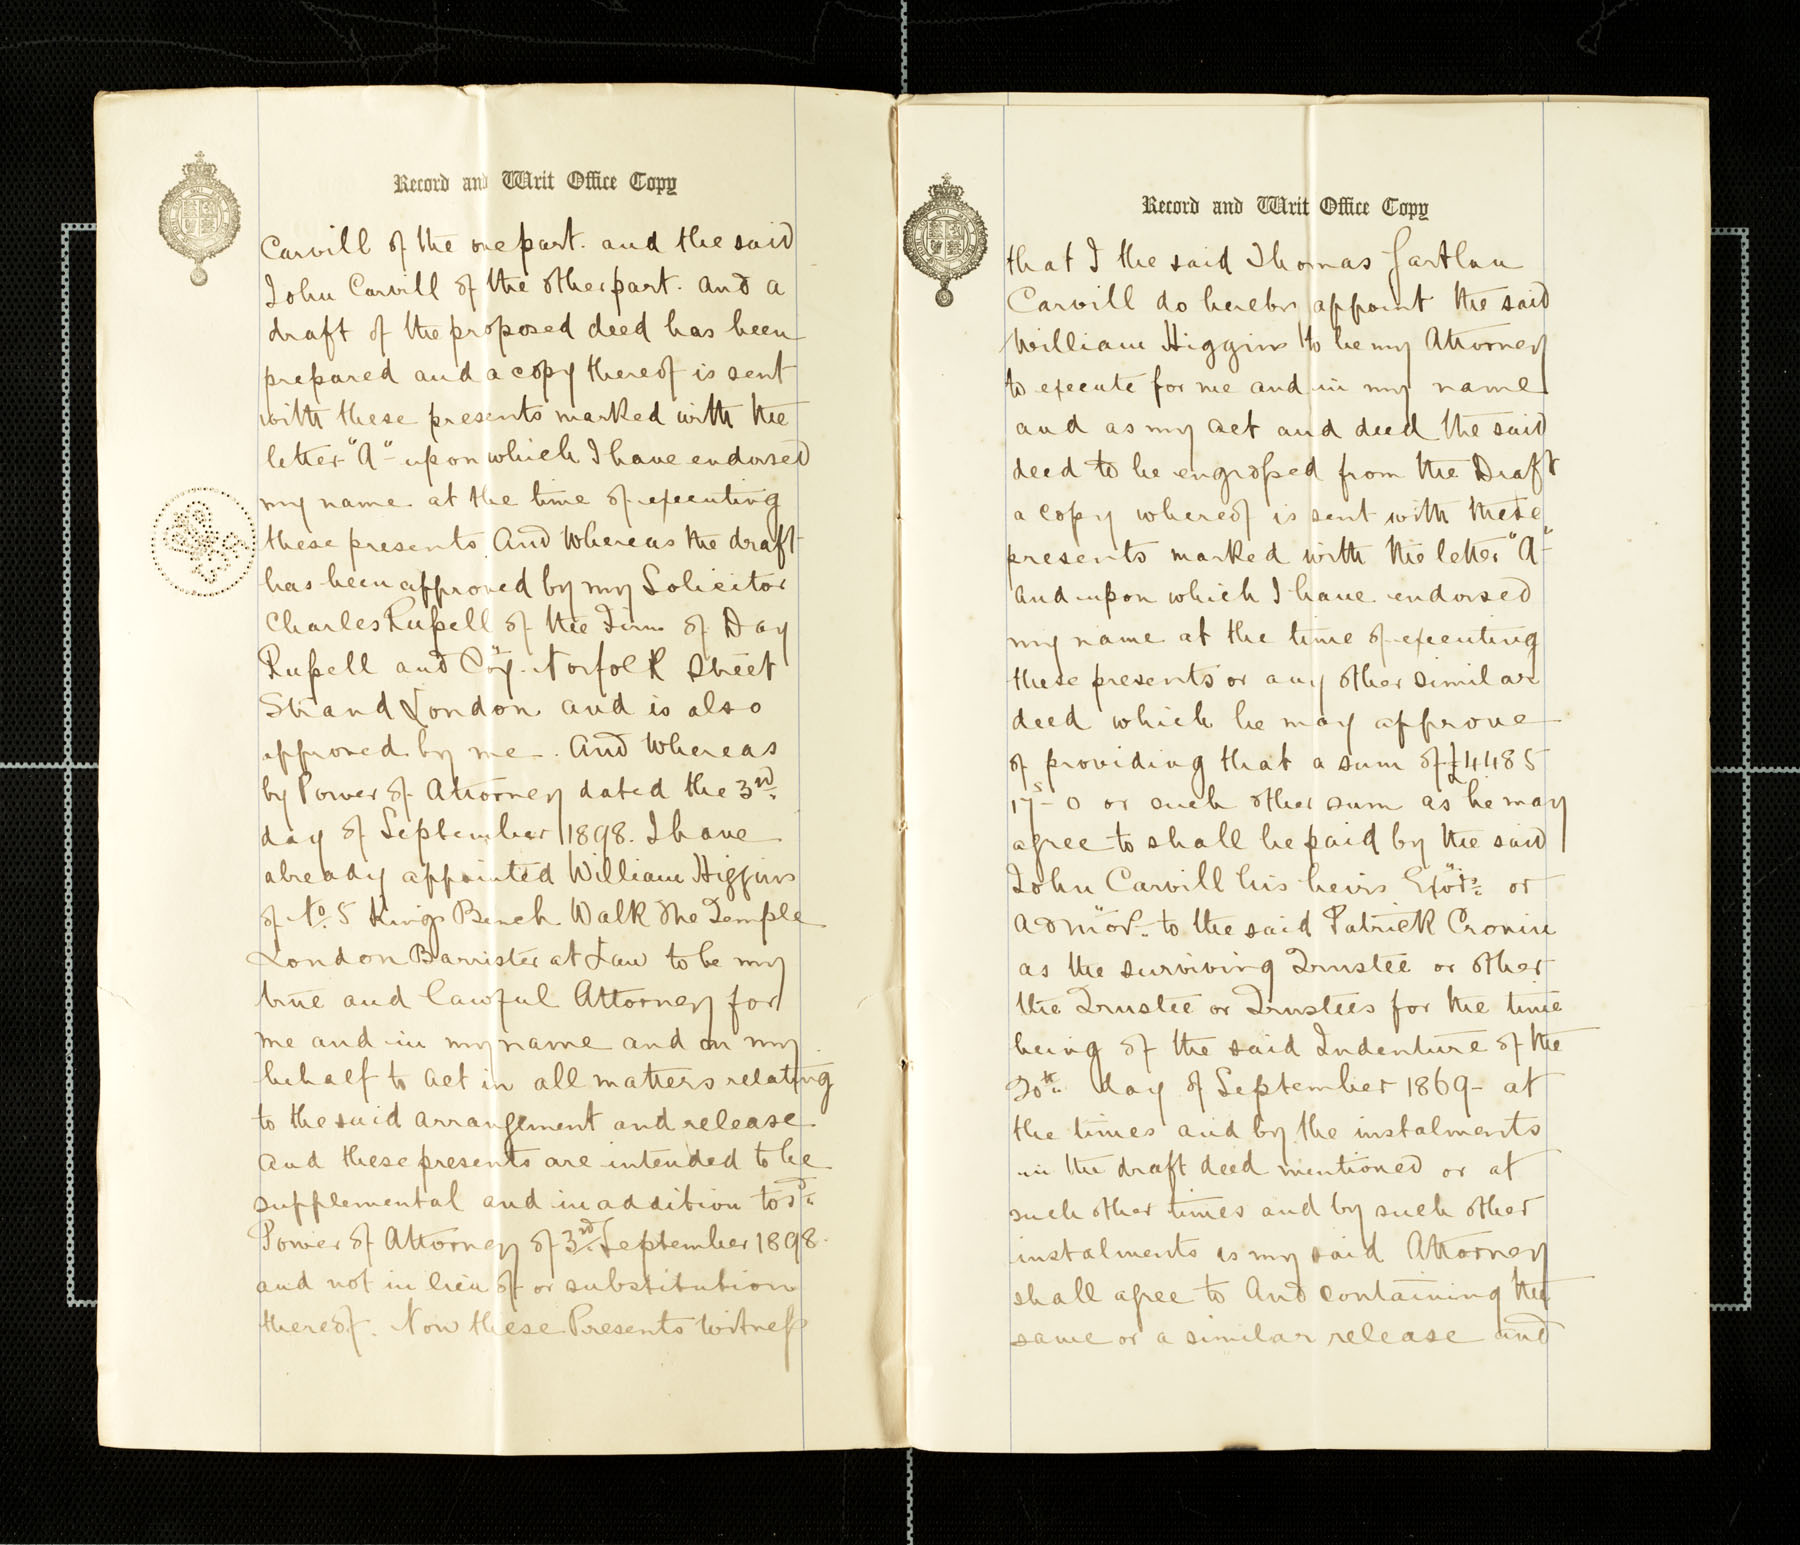 Record and Writ Office Copy
Carvill of the one part. and the said
John Carvill of the other part. and a
draft of the proposed deed has been
prepared and a copy thereof is sent
with these presents marked with the
letter "A" upon which I have endorsed
my name at the time of executing
these presents. And Whereas the draft
has been approved by my Solicitor
Charles Russell of the Firm of Day
Russell and Coy. Norfolk Street
Strand London and is also
approved by me. And Whereas
by Power of Attorney dated the 3rd
day of September 1898. I have
already appointed William Higgins
of No. 5 Kings Bench Walk The Temple
London Barrister at Law to be my
true and lawful Attorney for
me and in my name and on my
behalf to act in all matters relating
to the said arrangement and release
and these presents are intended to be
supplemental and in addition to sd.
Power of Attorney of 3rd September 1898.
and not in lieu of or substitution
thereof. Now these Presents Witness
Record and Writ Office Copy
that I the said Thomas Gartlan
Carvill do hereby appoint the said
William Higgins to be my Attorney
to execute for me and in my name
and as my act and deed the said
deed to be engrossed from the Draft
a copy whereof is sent with these
presents marked with the letter "A"
and upon which I have endorsed
my name at the time of executing
these presents or any other similar
deed which he may approve
of providing that a sum of £4485
17s - 0 or such other sum as he may
agree to shall be paid by the said
John Carvill his heirs Exors. or
Admors. to the said Patrick Cronin
as the surviving Trustee or other
the Trustee or Trustees for the time
being of the said Indenture of the
20th day of September 1869 - at
the times and by the instalments
in the draft deed mentioned or at
such other times and by such other
instalments as my said Attorney
shall agree to And containing the
same or a similar release and